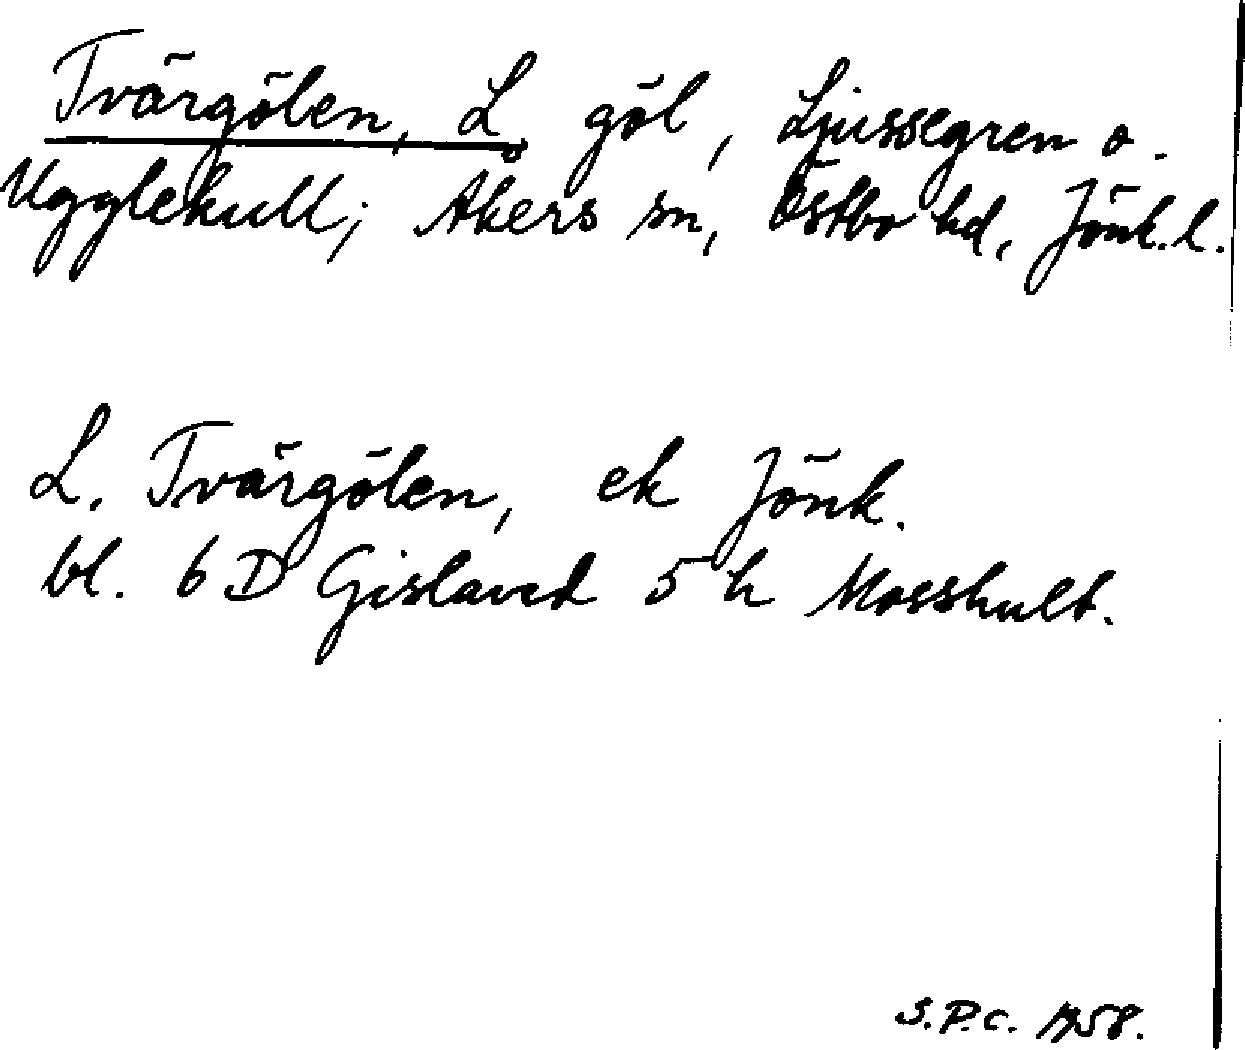 Tvärgölen, L. göl, Ljussegren o.
Ugglekull; Åkers sn, Östbo hd, Jönk. l.
L. Tvärgölen, ek Jönk.
bl. 6 D Gislaved 5 h Mosshult.
S.P.C. 1958.